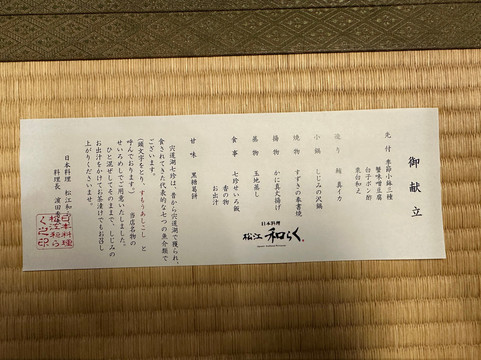 御献立
先付 季節の鉢三種
蟹味噌豆腐
白子ポン酢
東白和え
造り 鯛 真イカ
小鍋 しじみの沢鍋
焼物 すずきの奉書焼
揚物 かに真丈揚げ
蒸物 玉地蒸し
食事 七珍せいろ飯
香の物
お出汁
甘味 黒糖葛餅
宍道湖七珍は、昔から宍道湖で獲られ、
食されてきた代表的な七つの魚介類で
ございます。
(頭文字をとり、すもうあしこし と
呼んでおります) 当店名物の
せいろめしでご用意いたしました。
ひと混ぜしてそのままで、しじみの
お出汁をかけてお茶漬けでもお召し
上がりくださいませ。
日本料理 松江 和らく
料理長 濱田
日本料理
松江 和らく
日本料理
松江和ら
く之印